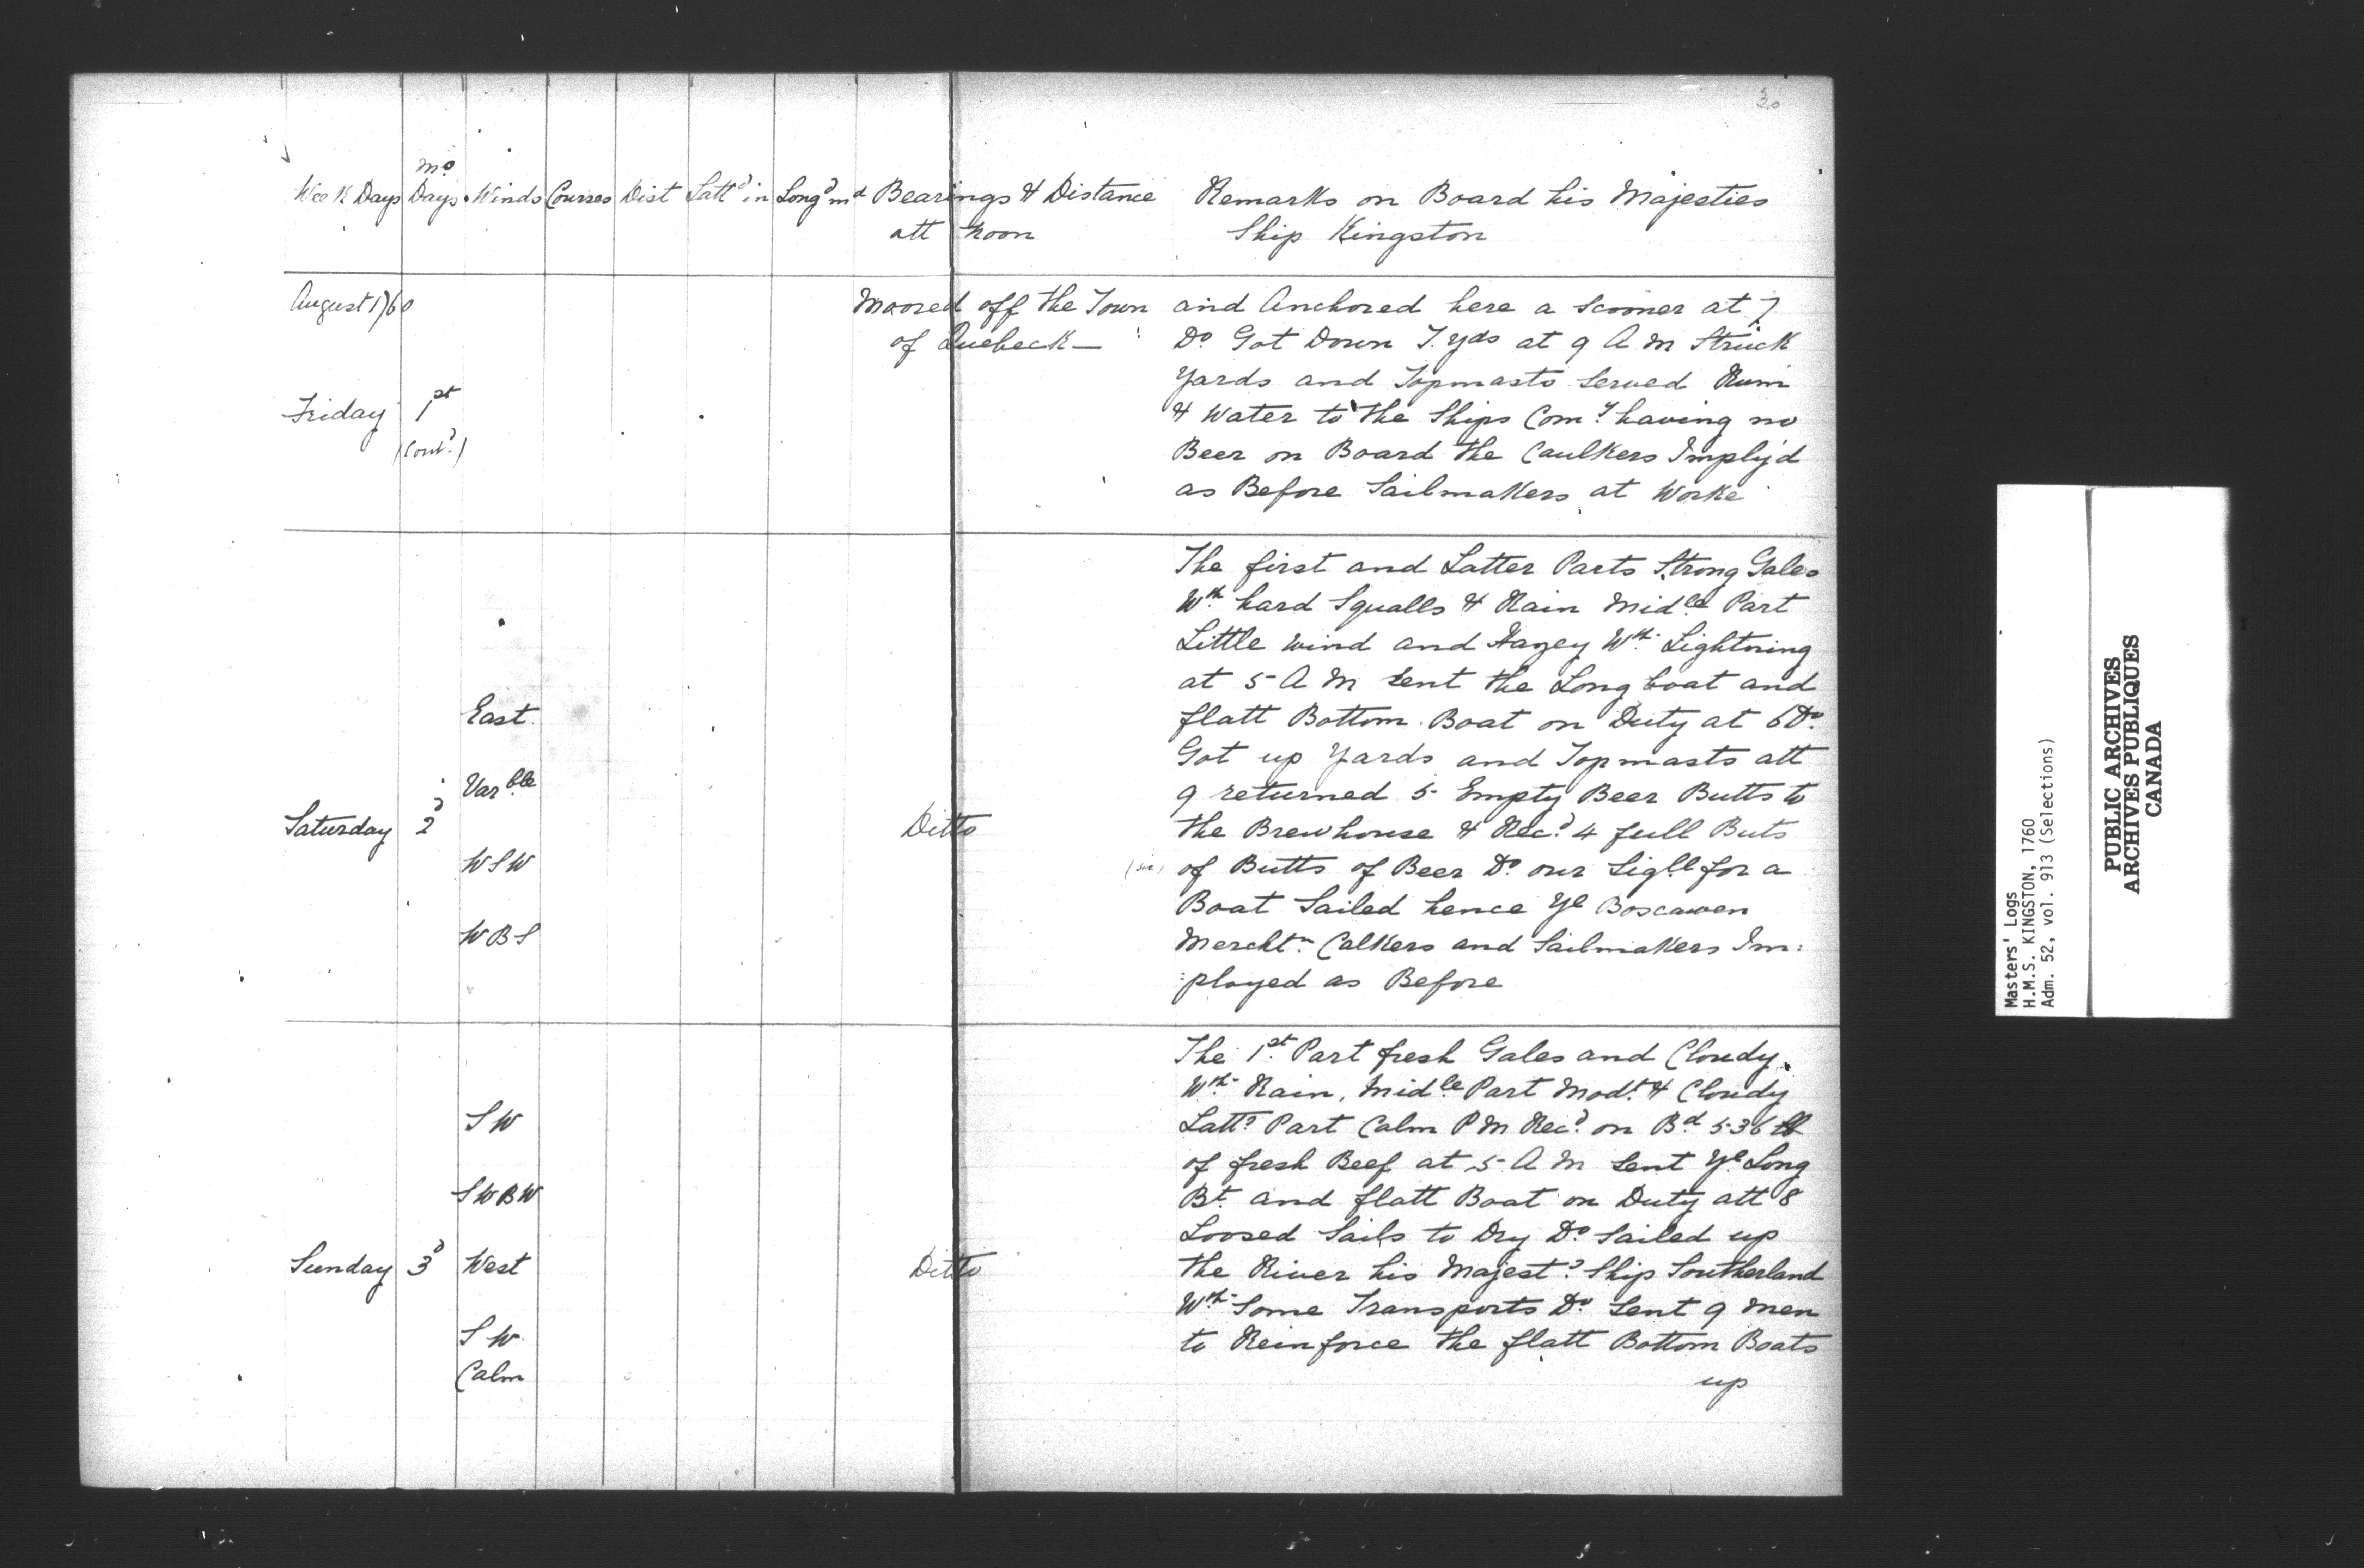 30
Week Days | Mo Days | Winds | Courses | Dist | Lattd in | Longd in | Bearings & Distance att Noon | Remarks on Board his Majesties Ship Kingston
August 1760
Friday 1st
(Contd)
Moored off the Town
of Quebeck —
and Anchored here a Scooner at 7
Do Got Down T. yds at 9 A M Struck
Yards and Topmasts Served Rum
& Water to the Ships Comy having no
Beer on Board the Caulkers Imply'd
as Before Sailmakers at Worke
Saturday 2d
East
Varble
WSW
WBS
Ditto
The first and Latter Parts Strong Gales
Wth hard Squalls & Rain Midle Part
Little wind and Hazey Wth Lightning
at 5 A M Sent the Long boat and
flatt Bottom Boat on Duty at 6 Do
Got up Yards and Topmasts att
9 returned 5 Empty Beer Butts to
the Brewhouse & Recd 4 full Buts
(sic) of Butts of Beer Do our Sigll for a
Boat Sailed hence Ye Boscawen
Merchtn Calkers and Sailmakers Im:
:ployed as Before
Sunday 3d
SW
SWBW
West
SW
Calm
Ditto
The 1st Part fresh Gales and Cloudy
Wth Rain, Midle Part Modt & Cloudy
Lattr Part Calm P M Recd on Bd 536 lb
of fresh Beef at 5 A M Sent Ye Long
Bt and flatt Boat on Duty att 8
Loosed Sails to Dry Do Sailed up
the River his Majests Ship Southerland
Wth Some Transports Do Sent 9 men
to Reinforce the flatt Bottom Boats
up
Masters' Logs
H.M.S. KINGSTON, 1760
Adm. 52, vol. 913 (Selections)
PUBLIC ARCHIVES
ARCHIVES PUBLIQUES
CANADA